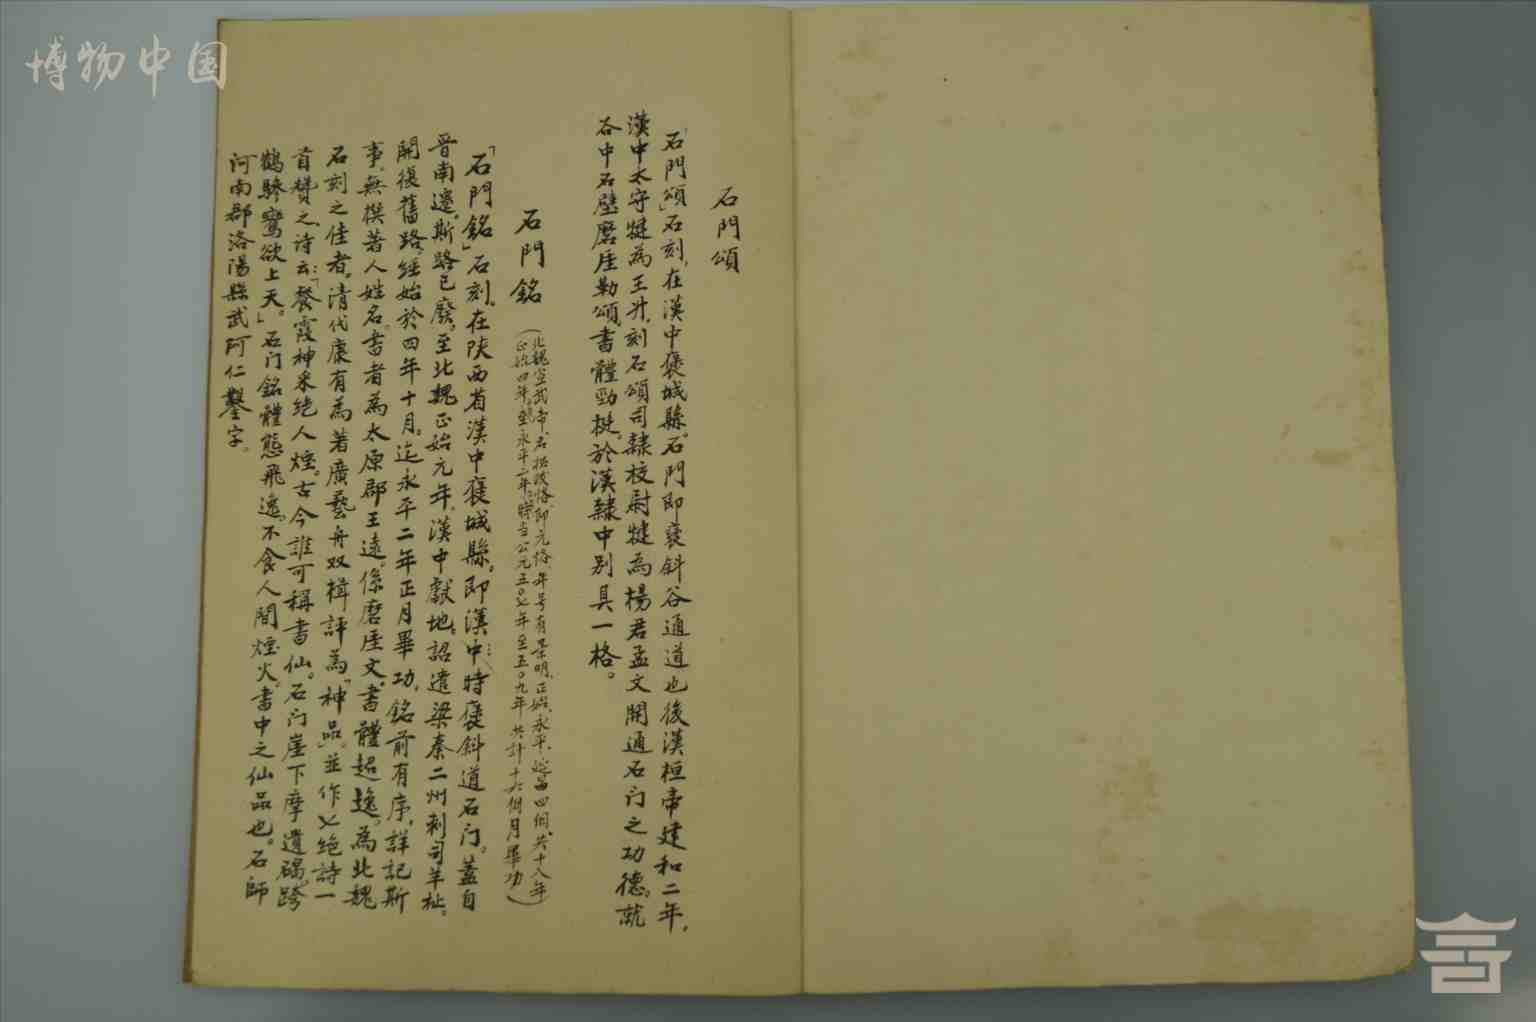 博物中国
石門頌
「石門頌」石刻,在漢中褒城縣。石門即褒斜谷通道也後漢桓帝建和二年,
漢中太守犍為王升,刻石頌司隸校尉犍為楊君孟文開通石门之功德。就
谷中石壁磨厓勒頌,書體勁挺。於漢隸中別具一格。
石門銘
(北魏宣武帝,名拓跋恪,即元恪、年号有景明、正始、永平、延昌四個、共十八年
正始四年至永平二年,時当公元五〇七年至五〇九年共計十六個月畢功)
「石門銘」石刻。在陝西省漢中褒城縣。即漢中時褒斜道石门。蓋自
晉南遷。斯路已廢。至北魏正始元年。漢中獻地。詔遣梁秦二州刺司羊祉。
開復舊路。經始於四年十月。迄永平二年正月畢功,銘前有序,詳記斯
事,無撰著人姓名。書者為太原郡王遠。係磨厓文。書體超逸。為北魏
石刻之佳者。清代康有為著廣藝舟双楫評為「神品」。並作七絕詩一
首贊之,詩云:「餐霞神采绝人煙。古今誰可稱書仙。石门崖下摩遺碣,跨
鶴驂鸞欲上天。」石门銘體態飛逸。不食人間煙火。書中之仙品也。石師
河南郡洛陽縣武阿仁鑿字。